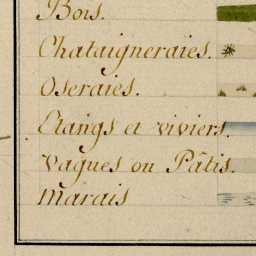 Bois.
Chataigneraies.
Oseraies.
Etangs et viviers.
Vagues ou Pâtis.
Marais